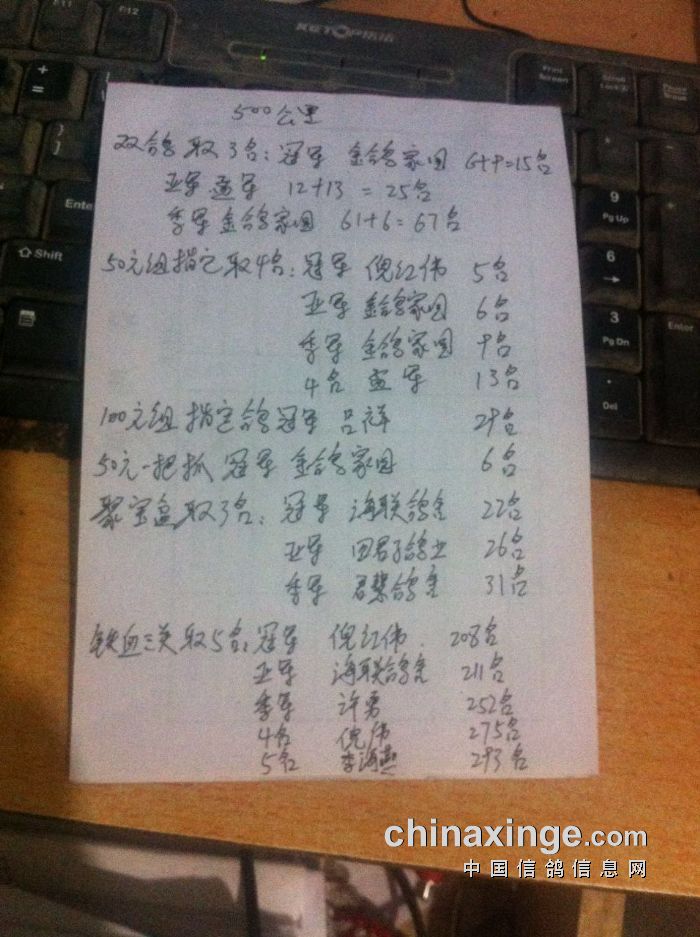 F11
F12
KETOP
Print Screen
Scroll Lock
Pause
Enter
Shift
9
Pg Up
6
3
Pg Dn
Del
Enter
500公里
双鸽取3名：冠军 金鸽家园 6+9=15名
亚军 孟军 12+13=25名
季军 金鸽家园 61+6=67名
50元组指定取4名：冠军 倪红伟 5名
亚军 金鸽家园 6名
季军 金鸽家园 9名
4名 孟军 13名
100元组指定鸽冠军 吕祥 29名
50元一把抓 冠军 金鸽家园 6名
聚宝盆取3名：冠军 海联鸽舍 22名
亚军 鸽业 26名
季军 鸽舍 31名
铁血三关取5名：冠军 倪红伟 208名
亚军 海联鸽舍 211名
季军 许勇 252名
4名 倪伟 275名
5名 李海燕 293名
chinaxinge.com
中国信鸽信息网